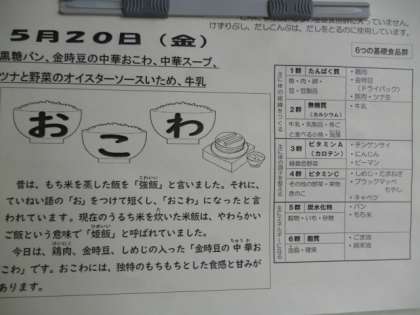 けずりぶし、だしこんぶは、だしをとるのに使用しています。
5月20日（金）
黒糖パン、金時豆の中華おこわ、中華スープ、
ツナと野菜のオイスターソースいため、牛乳
おこわ
昔は、もち米を蒸した飯を「強飯」と言いました。それに、
ていねい語の「お」をつけて短くし、「おこわ」になったと言
われています。現在のうるち米を炊いた米飯は、やわらかい
ご飯という意味で「姫飯」と呼ばれていました。
今日は、鶏肉、金時豆、しめじの入った「金時豆の中華お
こわ」です。おこわには、独特のもちもちとした食感と甘みが
あります。
6つの基礎食品群
1群 たんぱく質
魚・肉・卵・
豆・豆製品
・鶏肉
・金時豆
（ドライパック）
・豚肉・ツナ缶
2群 無機質
（カルシウム）
牛乳・乳製品・骨ご
と食べる小魚・海藻
・牛乳
3群 ビタミンA
（カロテン）
緑黄色野菜
・チンゲンサイ
・にんじん
・ピーマン
4群 ビタミンC
その他の野菜・果物
きのこ
・しめじ・たまねぎ
・ブラックマッペ
もやし
・キャベツ
5群 炭水化物
穀物・いも・砂糖
・パン
・もち米
6群 脂質
油脂・種実
・ごま油
・綿実油